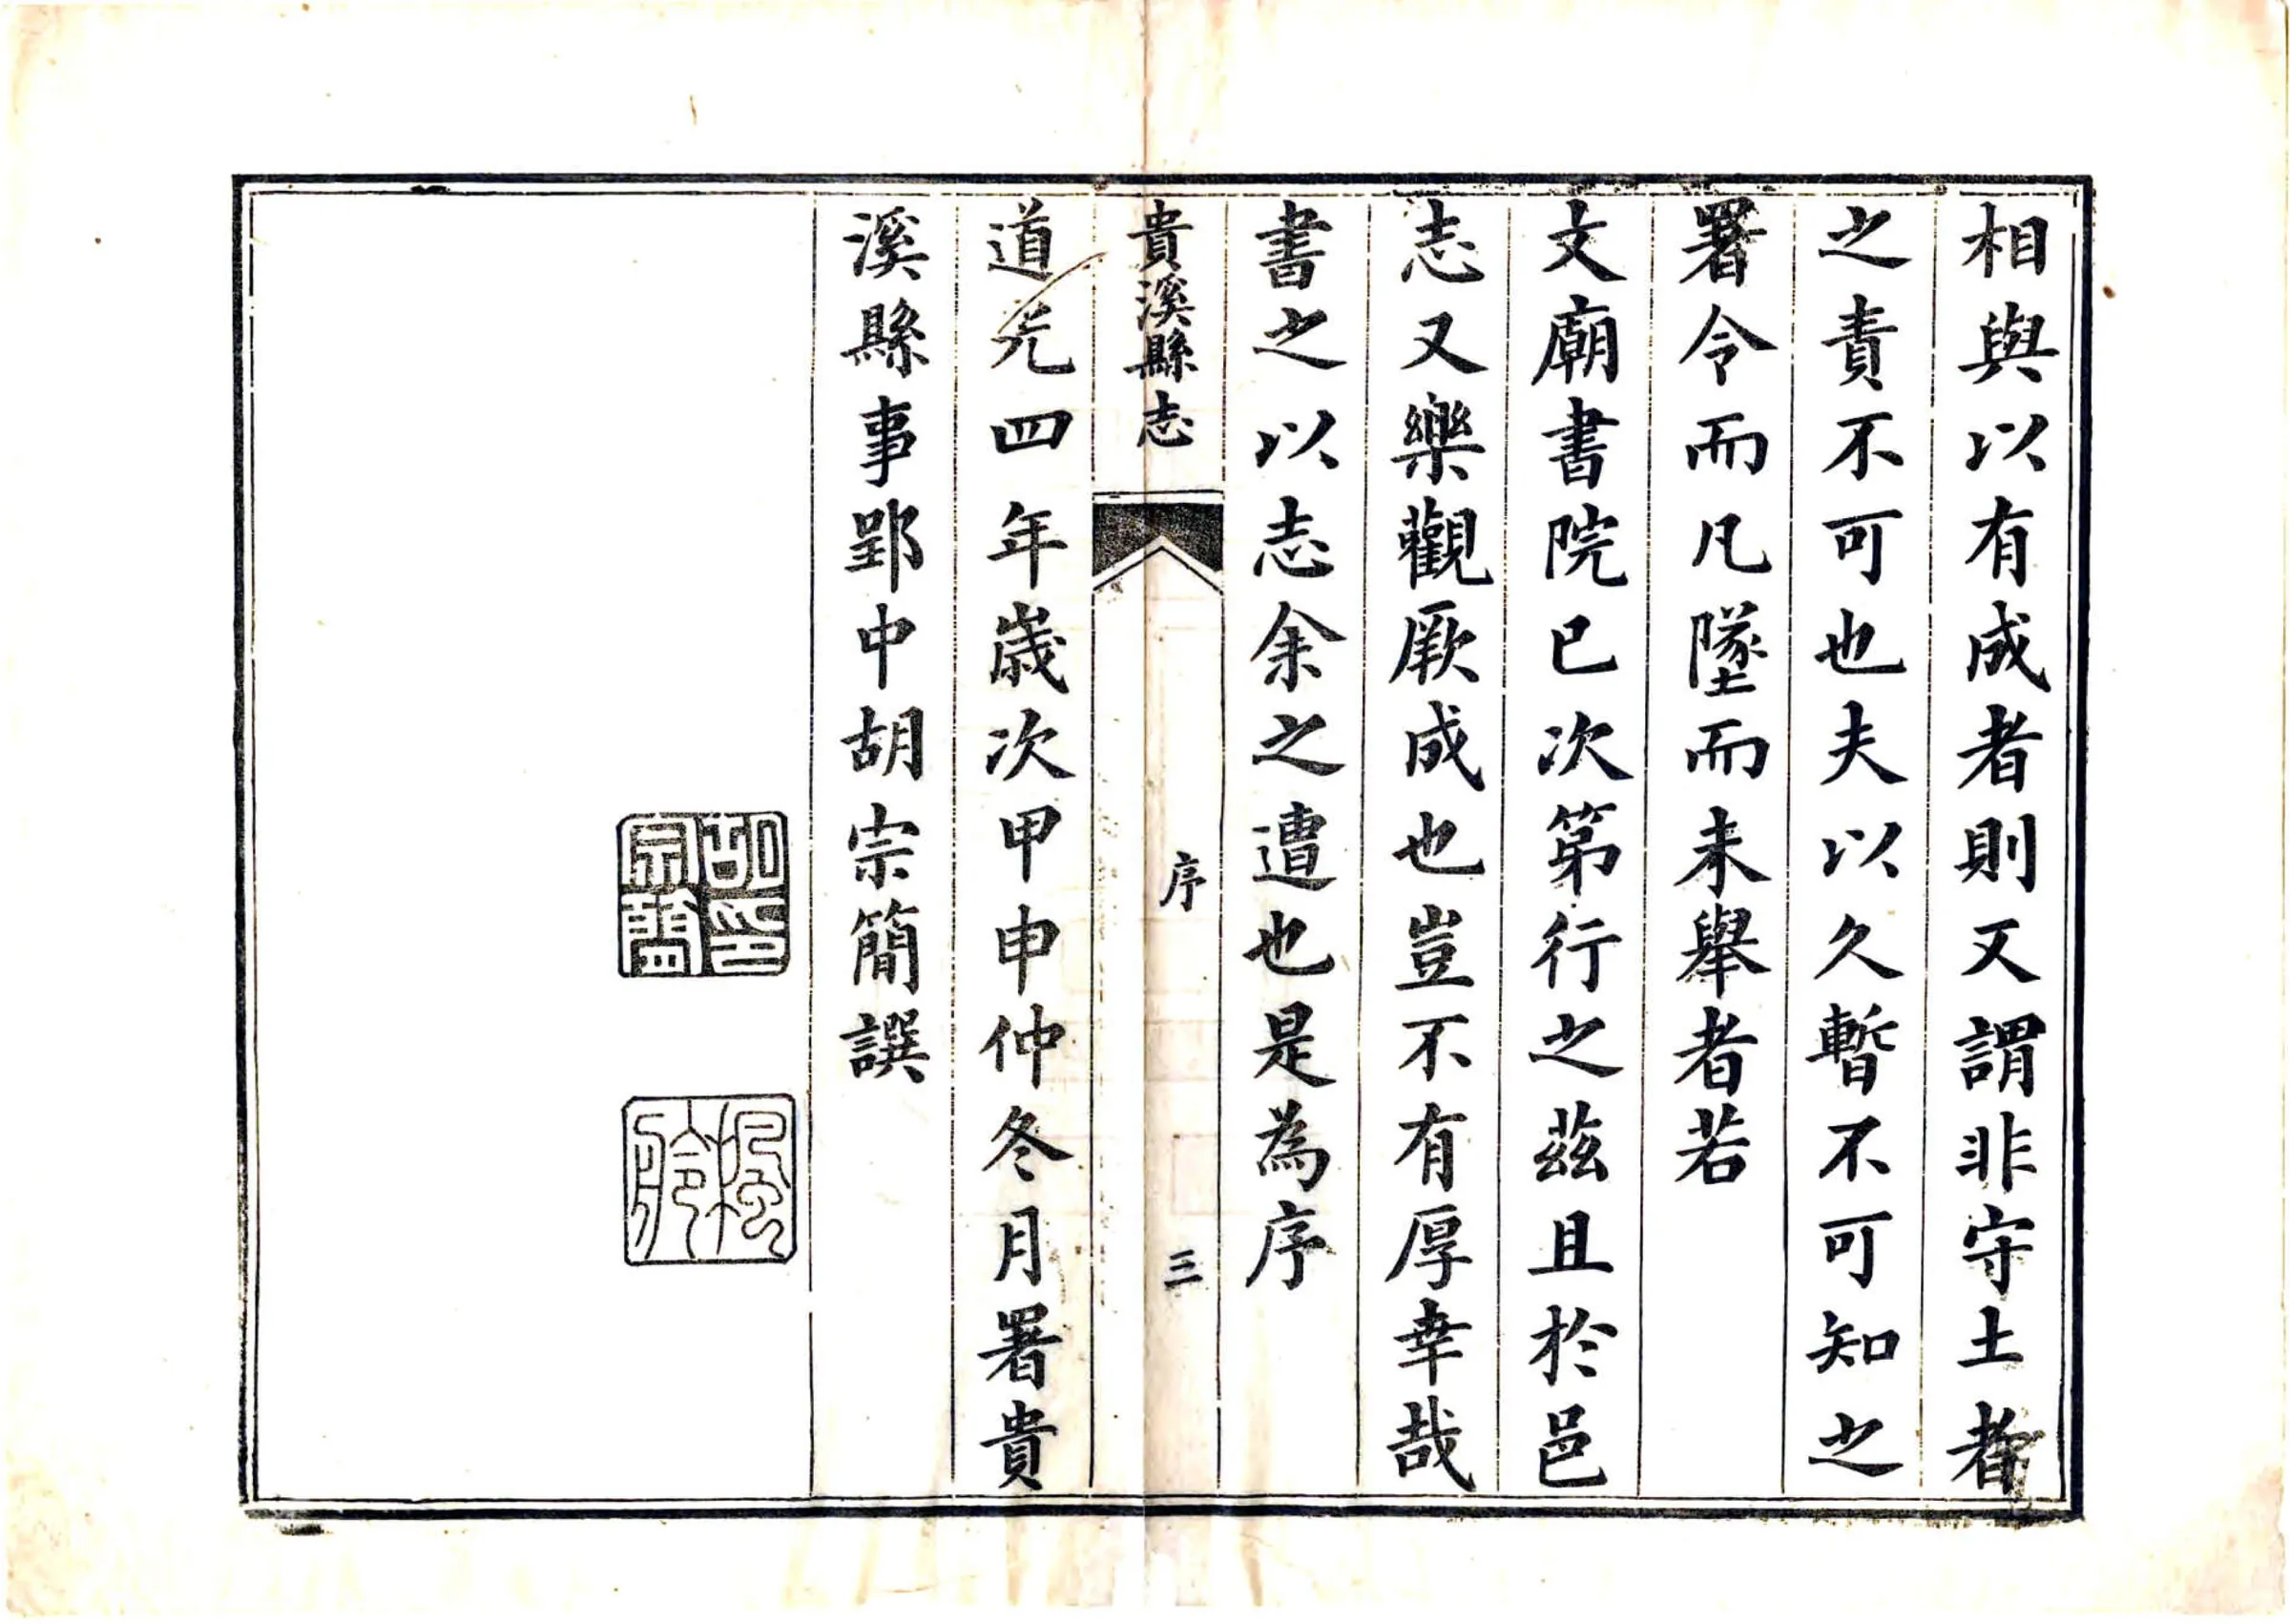 相與以有成者則又謂非守土者
之責不可也夫以久暫不可知之
署令而凡墜而未舉者若
文廟書院已次第行之茲且於邑
志又樂觀厥成也豈不有厚幸哉
書之以志余之遭也是為序
貴溪縣志
序
三
道光四年歲次甲申仲冬月署貴
溪縣事郢中胡宗簡譔
胡印
宗簡
楓
舲